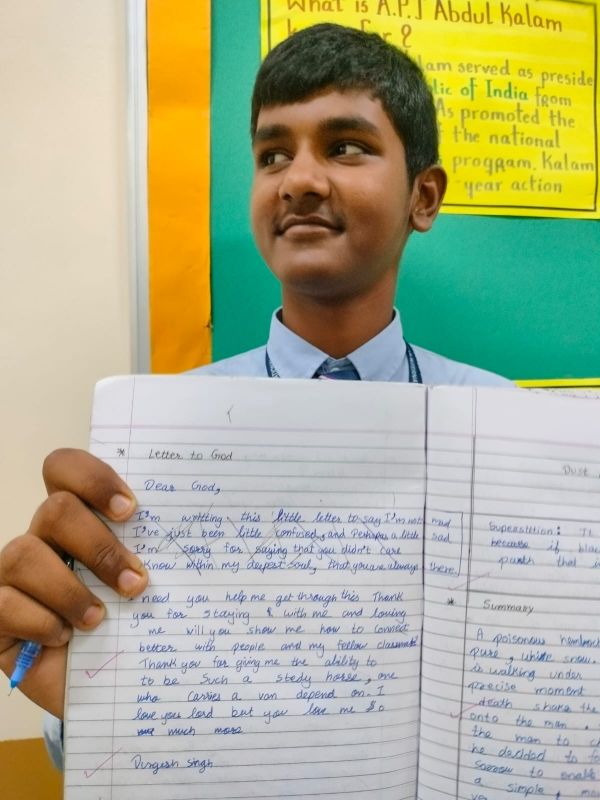 What is A.P.J Abdul Kalam
For ?
lam served as preside
lic of India from
As promoted the
f the national
s program. Kalam
-year action
* Letter to God
Dear God,
I'm writting this little letter to say I'm not mad
I've just been little confused, and Perhaps a little sad
I'm sorry for saying that you didn't care
Know within my deepest soul, that you are always there,
I need you help me get through this Thank
you for staying & with me and loving
me will you show me how to connect
better with people and my fellow classmate
Thank you for giving me the ability to
to be Such a stedy horse, one
who Carries a van depend on. I
love you lord but you love me So
much more
Durgesh Singh
Dust
Superstition: It
because if blac
path that i
* Summary
A poisonous hemlock
pure, white snow.
is walking under
precise moment
death shake the
onto the man.
the man to ch
he decided to fo
Sorrow to enable
a simple, mo